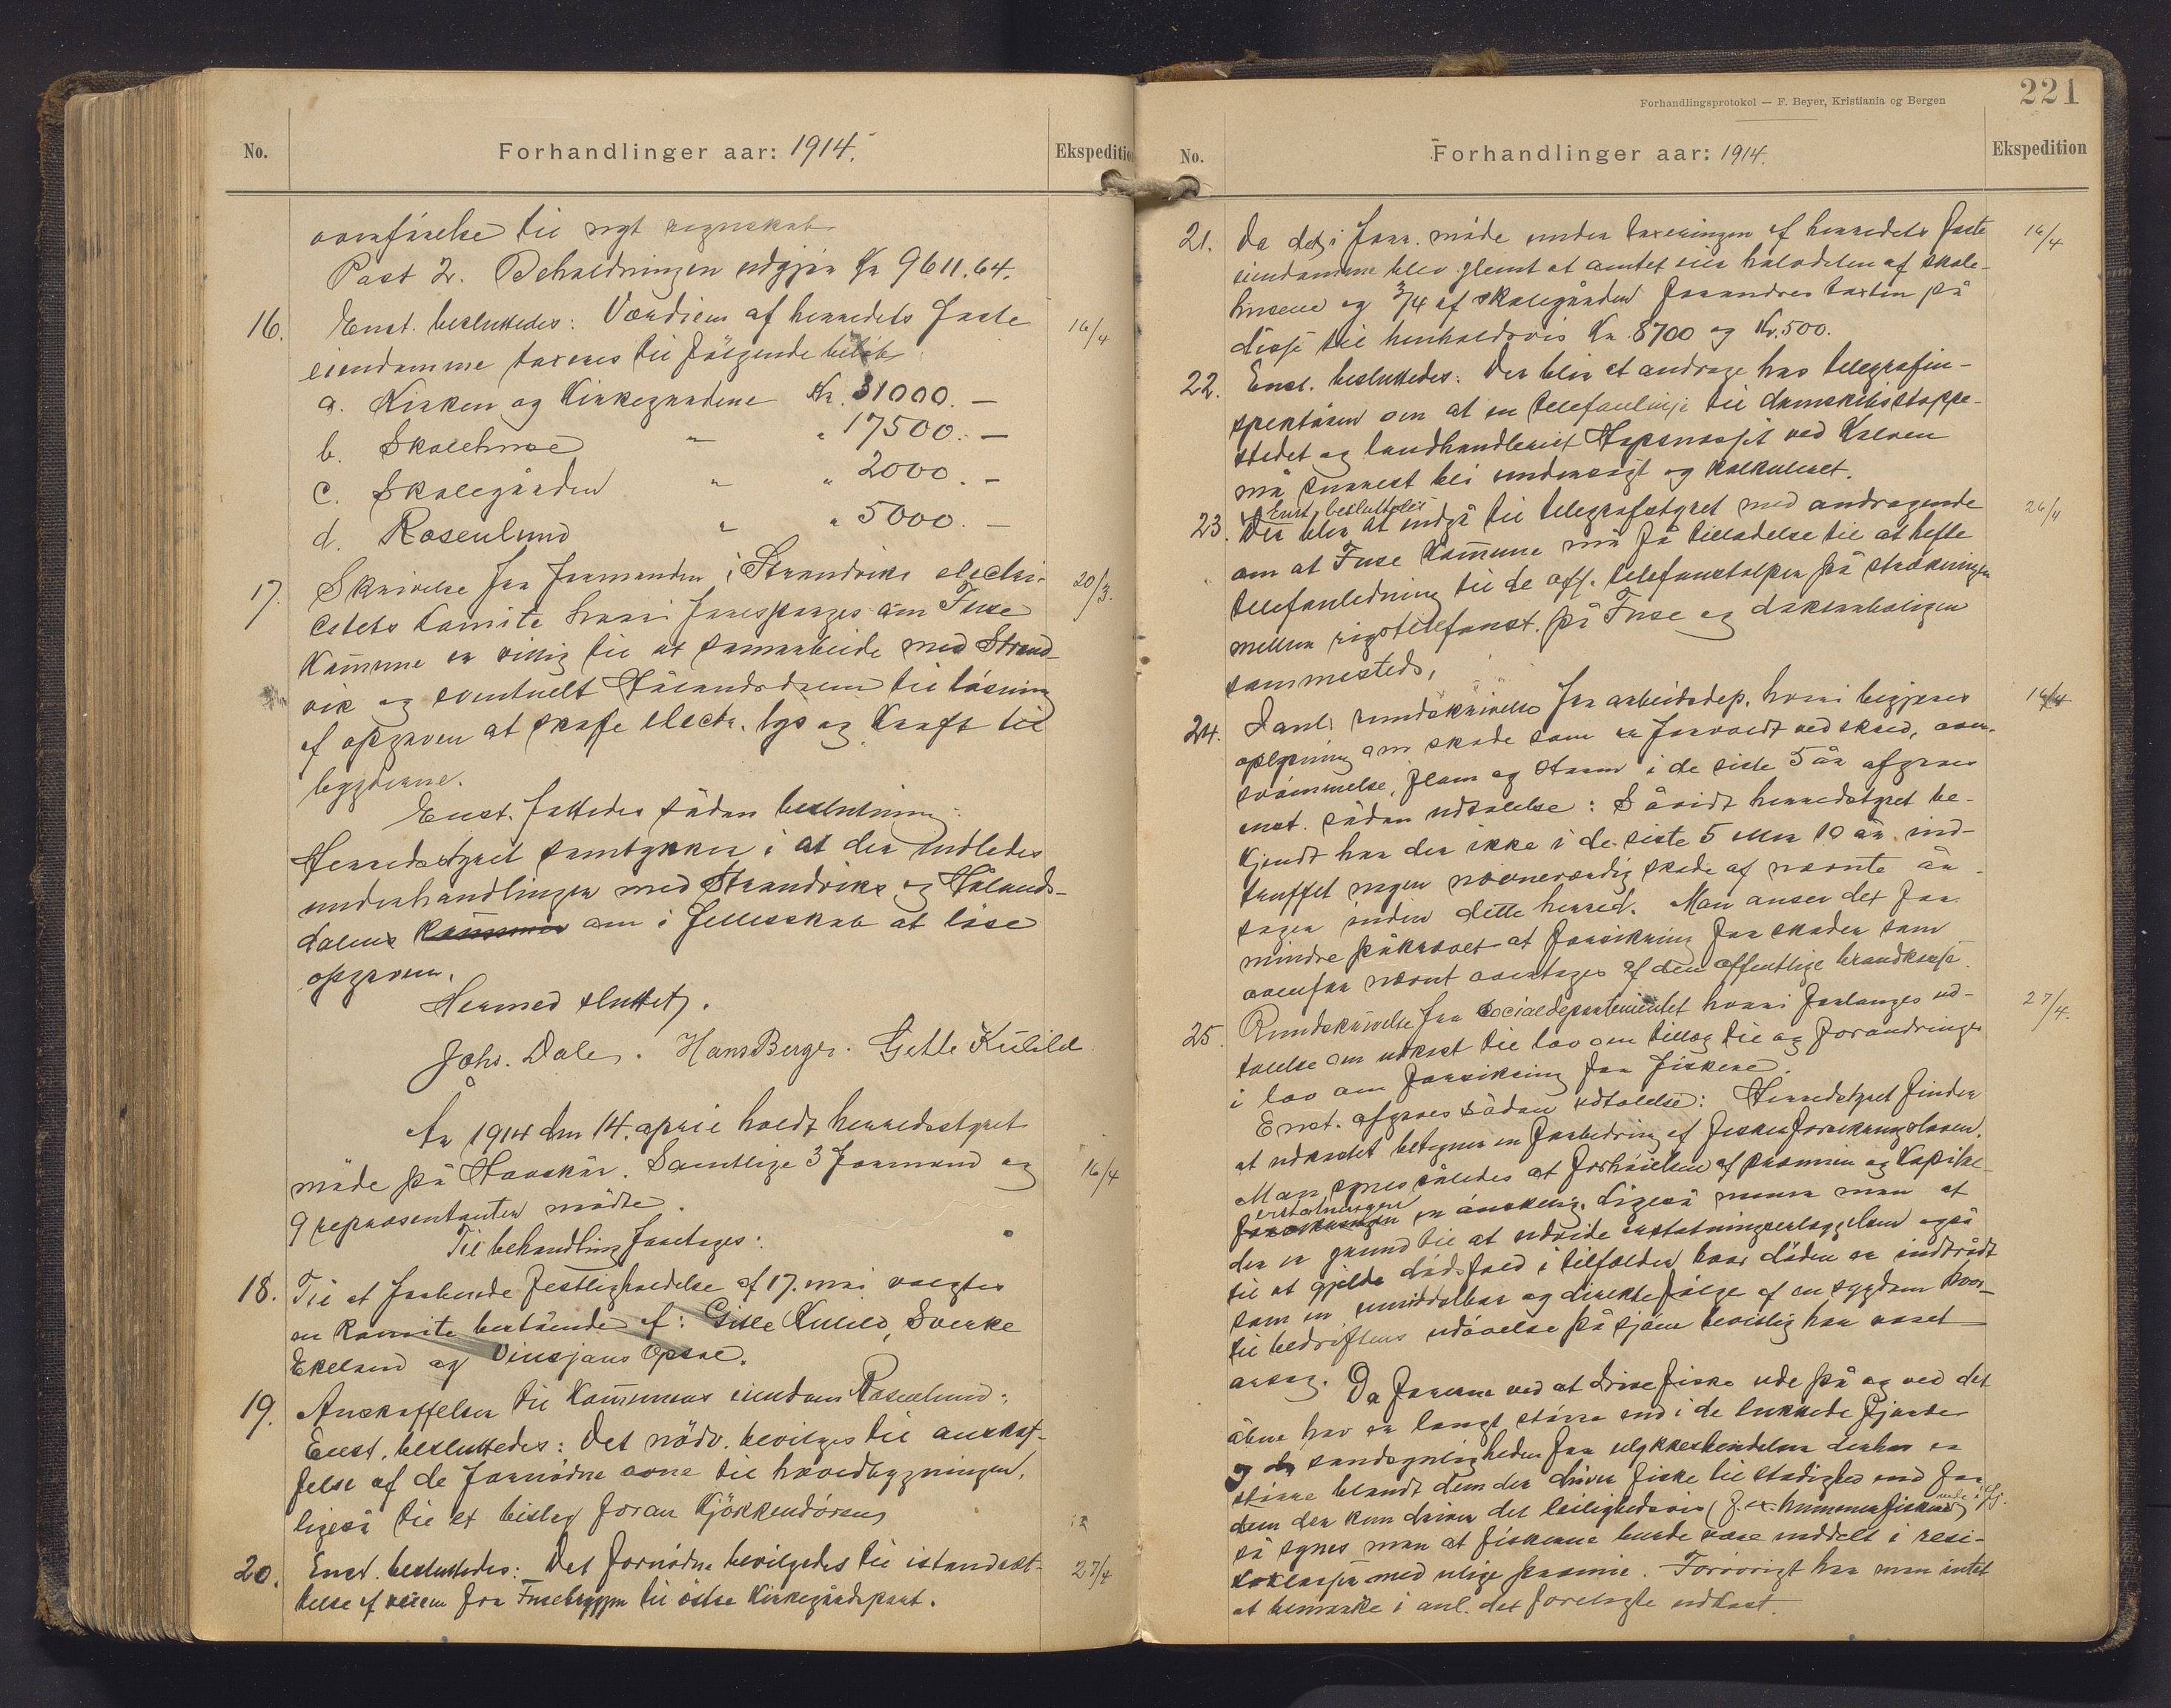 No.
Forhandlinger aar: 1914.
Ekspedition
overførelse til nyt regnskab
Post 2. Beholdningen udgjør Kr 9611.64.
16. Enst. besluttedes: Værdien af herredets faste 16/4
eiendomme taxeres til følgende beløb
a. Kirken og Kirkegaardene Kr. 31000. —
b. Skolehuse " " 17500. —
c. Skolegården " " 2000. —
d. Rosenlund " " 5000. —
17. Skrivelse fra formanden i Strandviks electri- 20/3.
citets komite hvori forespørges om Fuse
Kommune er villig til at samarbeide med Strand-
vik og eventuelt Hålandsdalen til løsning
af opgaven at skaffe electr. lys og Kraft til
bygderne.
Enst. fattedes sådan beslutning:
Herredsstyret samtykker i at der indledes
underhandlinger med Strandviks og Hålands-
dalens kommuner om i fellesskab at løse
opgaven.
Hermed sluttet.
Johs. Dale. Hans Berge. Gitle Kulild
År 1914 den 14. april holdt herredsstyret
møde på Havskår. Samtlige 3 formænd og 16/4
9 repræsentanter mødte.
Til behandling foretages:
18. Til at forberede festligholdelse af 17. mai valgtes
en komite bestående af: Gitle Kulild, Sverke
Ekeland og Vinsjans Opsal.
19. Anskaffelser til Kommunens eiendom Rosenlund:
Enst. besluttedes: Det nödv. bevilges til anskaf-
felse af de fornødne ovne til hovedbygningen,
ligeså til et bislag foran Kjökkendören
20. Enst. besluttedes: Det fornödne bevilgedes til istandsæt- 27/4
telse af veien fra Fusebryggen til östre Kirkegårdsport.
Forhandlingsprotokol — F. Beyer, Kristiania og Bergen
221
No.
Forhandlinger aar: 1914.
Ekspedition
21. Da det i forr. møde under taxeringen af herredets faste 16/4
eiendomme blev glemt at amtet eier halvdelen af skole-
husene og 3/4 af skolegården forandres taxten på
disse til henholdsvis Kr. 8700 og Kr. 500.
22. Enst. besluttedes: Der blir at andrage hos telegrafin-
spektøren om at en telefonlinje til damskibsstoppe-
stedet og landhandleriet Hopsnesset ved Kalven
må snarest bli undersøgt og kalkuleret.
Enst. besluttedes
23. Der blir at indgå til telegrafstyret med andragende 26/4
om at Fuse Kommune må få tilladelse til at hefte
telefonledning til de off. telefonstolper på strækningen
mellem rigstelefonst. på Fuse og doktorboligen
sammesteds.
24. I anl. rundskrivelse fra arbeidsdep. hvori begjæres 16/4
oplysning om skade som er forvoldt ved skred, over-
svømmelse, flom og storm i de siste 5 år afgives
enst. sådan udtalelse: Såvidt herredstyret be-
kjendt har der ikke i de siste 5 eller 10 år ind-
truffet nogen nævneværdig skade af nævnte år-
sager inden dette herred. Man anser det for
mindre påkrævet at forsikring for skader som
ovenfor nævnt overtages af den offentlige brandkasse.
25. Rundskrivelse fra Socialdepartementet hvori forlanges ud- 27/4.
talelse om udkast til lov om tillæg til og forandringer
i lov om forsikring for fiskere.
Enst. afgives sådan udtalelse: Herredstyret finder
at udkastet betegner en forbedring af fiskerforsikringsloven.
Man synes således at forhøielsen af præmien og kapital-
erstatningen
forsikringen er ønskelig. Ligeså mener man at
der er grund til at udvide erstatningsforleggelsen også
til at gjelde dødsfald i tilfælder hvor døden er indtrådt
som en umiddelbar og direkte følge af en sygdom hvor-
til bedriftens udøvelse på sjøen bevislig har været
årsag. Da farerne ved at drive fiske ude på og ved det
åbne hav er langt større end i de lukkede fjorder
og da sandsynligheden for ulykkeshendelser derhos er
større blandt dem der driver fiske til stadighed end for
dem der kun driver det leilighedsvis (f. ex. hummerfiskere inde i fj.)
så synes man at fiskerne burde være inddelt i resi-
koklasser med ulige præmie. Forøvrigt har man intet
at bemærke i anl. det forelagte udkast.